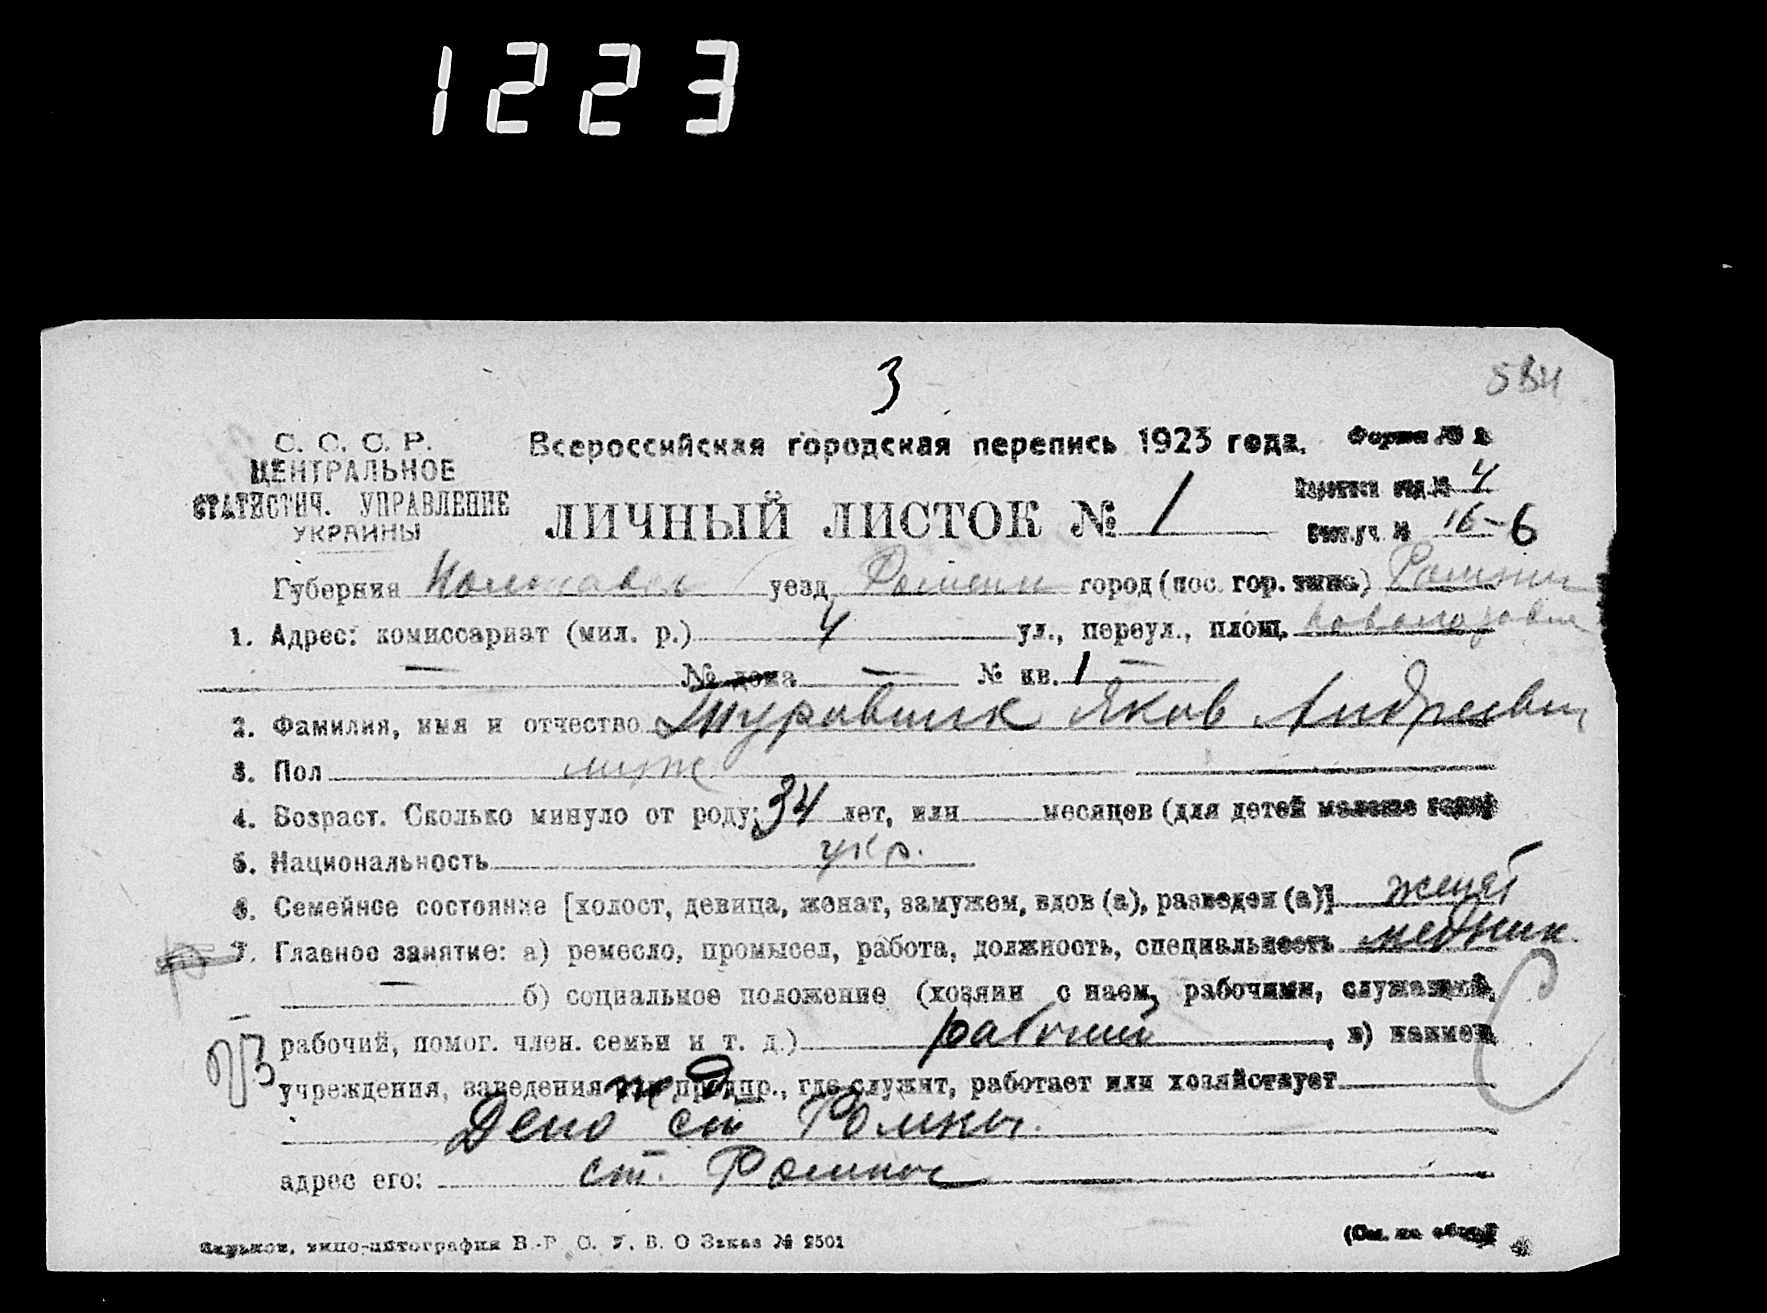 1223
3
5ВИ
С. С. С. Р.
ЦЕНТРАЛЬНОЕ
СТАТИСТИЧ. УПРАВЛЕНИЕ
УКРАИНЫ
Всероссийская городская перепись 1923 года.
Форма № 2
ЛИЧНЫЙ ЛИСТОК № 1
Переписн отд. № 4
Счет.уч. № 16-6
Губерния Полтавск уезд Ромени город (пос. гор. типа) Ромны
1. Адрес: комиссариат (мил. р.) 4 ул., переул., площ.
— № дома — № кв. 1 —
2. Фамилия, имя и отчество Яков Андреевич
3. Пол муж
4. Возраст. Сколько минуло от роду: 34 лет, или месяцев (для детей моложе года)
5. Национальность укр.
6. Семейное состояние [холост, девица, женат, замужем, вдов (а), разведен (а)] женат
7. Главное занятие: а) ремесло, промысел, работа, должность, специальность медник
— б) социальное положение (хозяин с наем, рабочими, служащий,
рабочий, помог. член. семьи и т. д.) рабочий, в) наимен
учреждения, заведения или предпр., где служит, работает или хозяйствует
Депо ст Ромны.
адрес его: ст. Ромны
Харьков, типо-литография В.-Р. С. У. В. О Заказ № 2501
(См. на обор.)